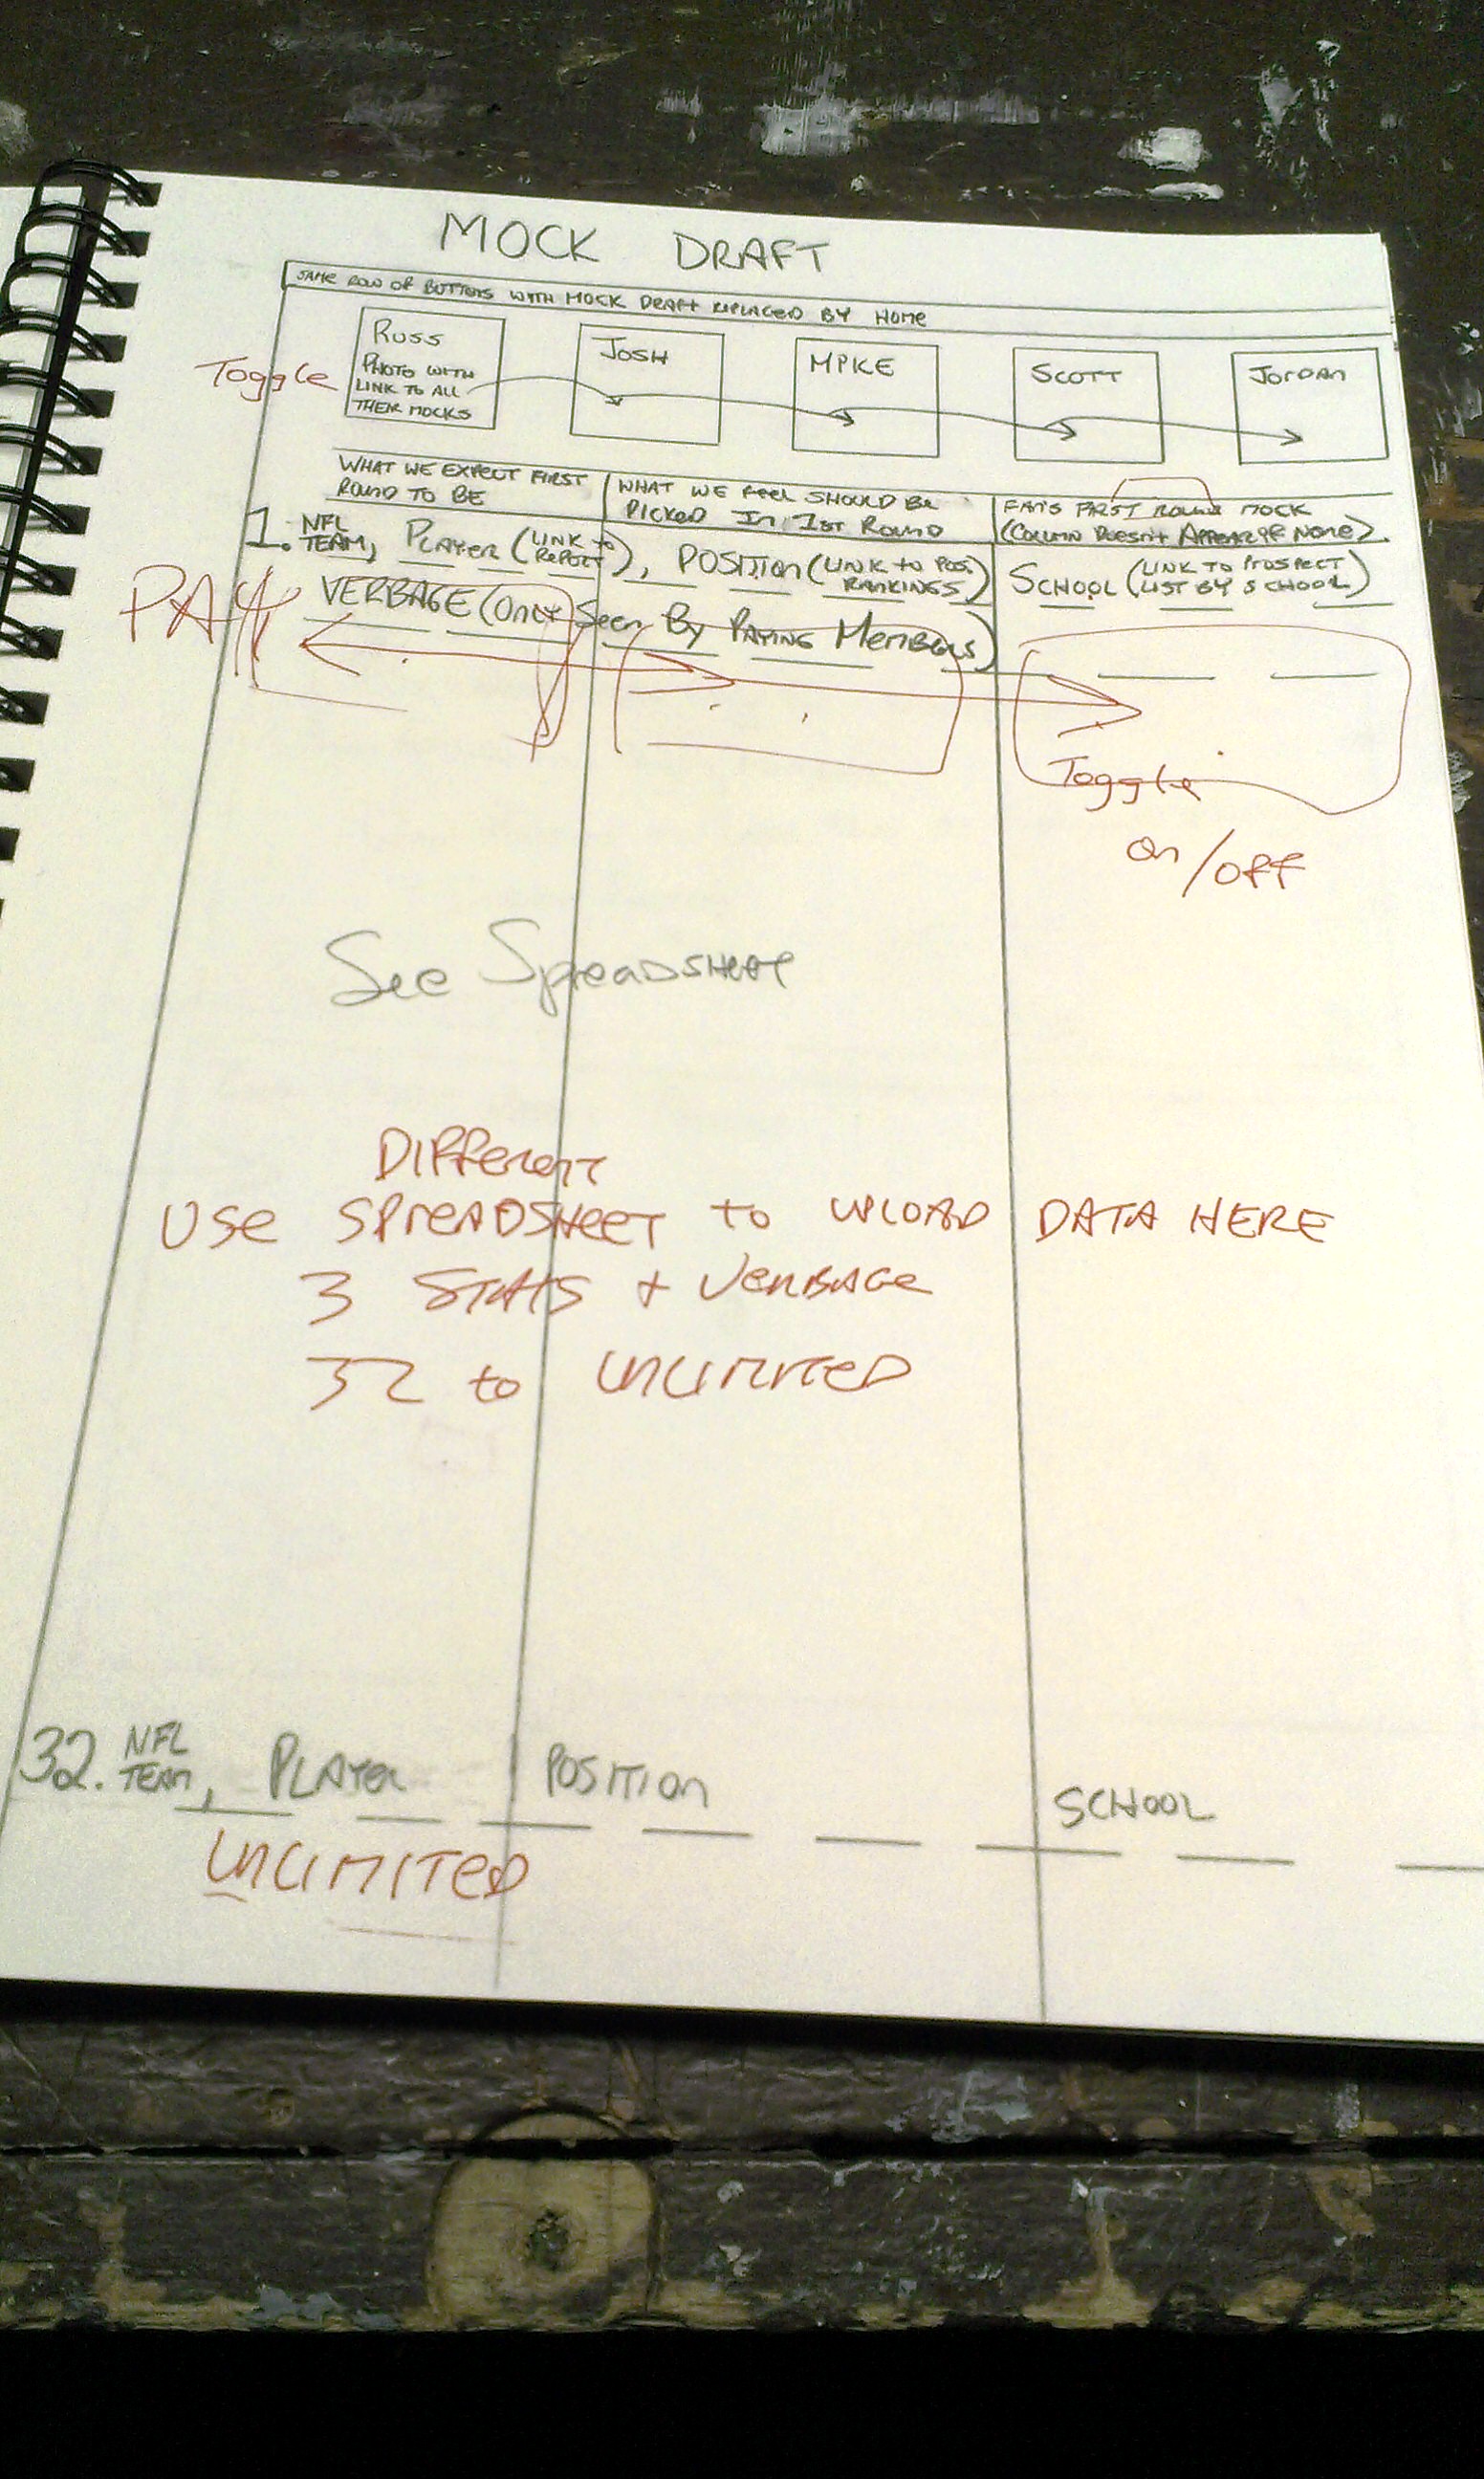 MOCK DRAFT
SAME ROW OF BUTTONS WITH MOCK DRAFT REPLACED BY HOME
Toggle
RUSS
PHOTO WITH
LINK TO ALL
THEIR MOCKS
JOSH
MIKE
SCOTT
JORDAN
WHAT WE EXPECT FIRST
ROUND TO BE
WHAT WE FEEL SHOULD BE
PICKED IN 1ST ROUND
FAN'S FIRST ROUND MOCK
(COLUMN DOESN'T APPEAR IF NONE)
1. NFL TEAM, PLAYER (LINK to REPORT), POSITION (LINK to POS. RANKINGS) SCHOOL (LINK TO PROSPECT LIST BY SCHOOL)
PAY
VERBAGE (ONLY Seen By PAYING MEMBERS)
Toggle
on/off
See SpreadSHEET
DIFFERENT
USE SPREADSHEET to UPLOAD DATA HERE
3 STATS + VERBAGE
32 to UNLIMITED
32. NFL TEAM, PLAYER POSITION SCHOOL
UNLIMITED